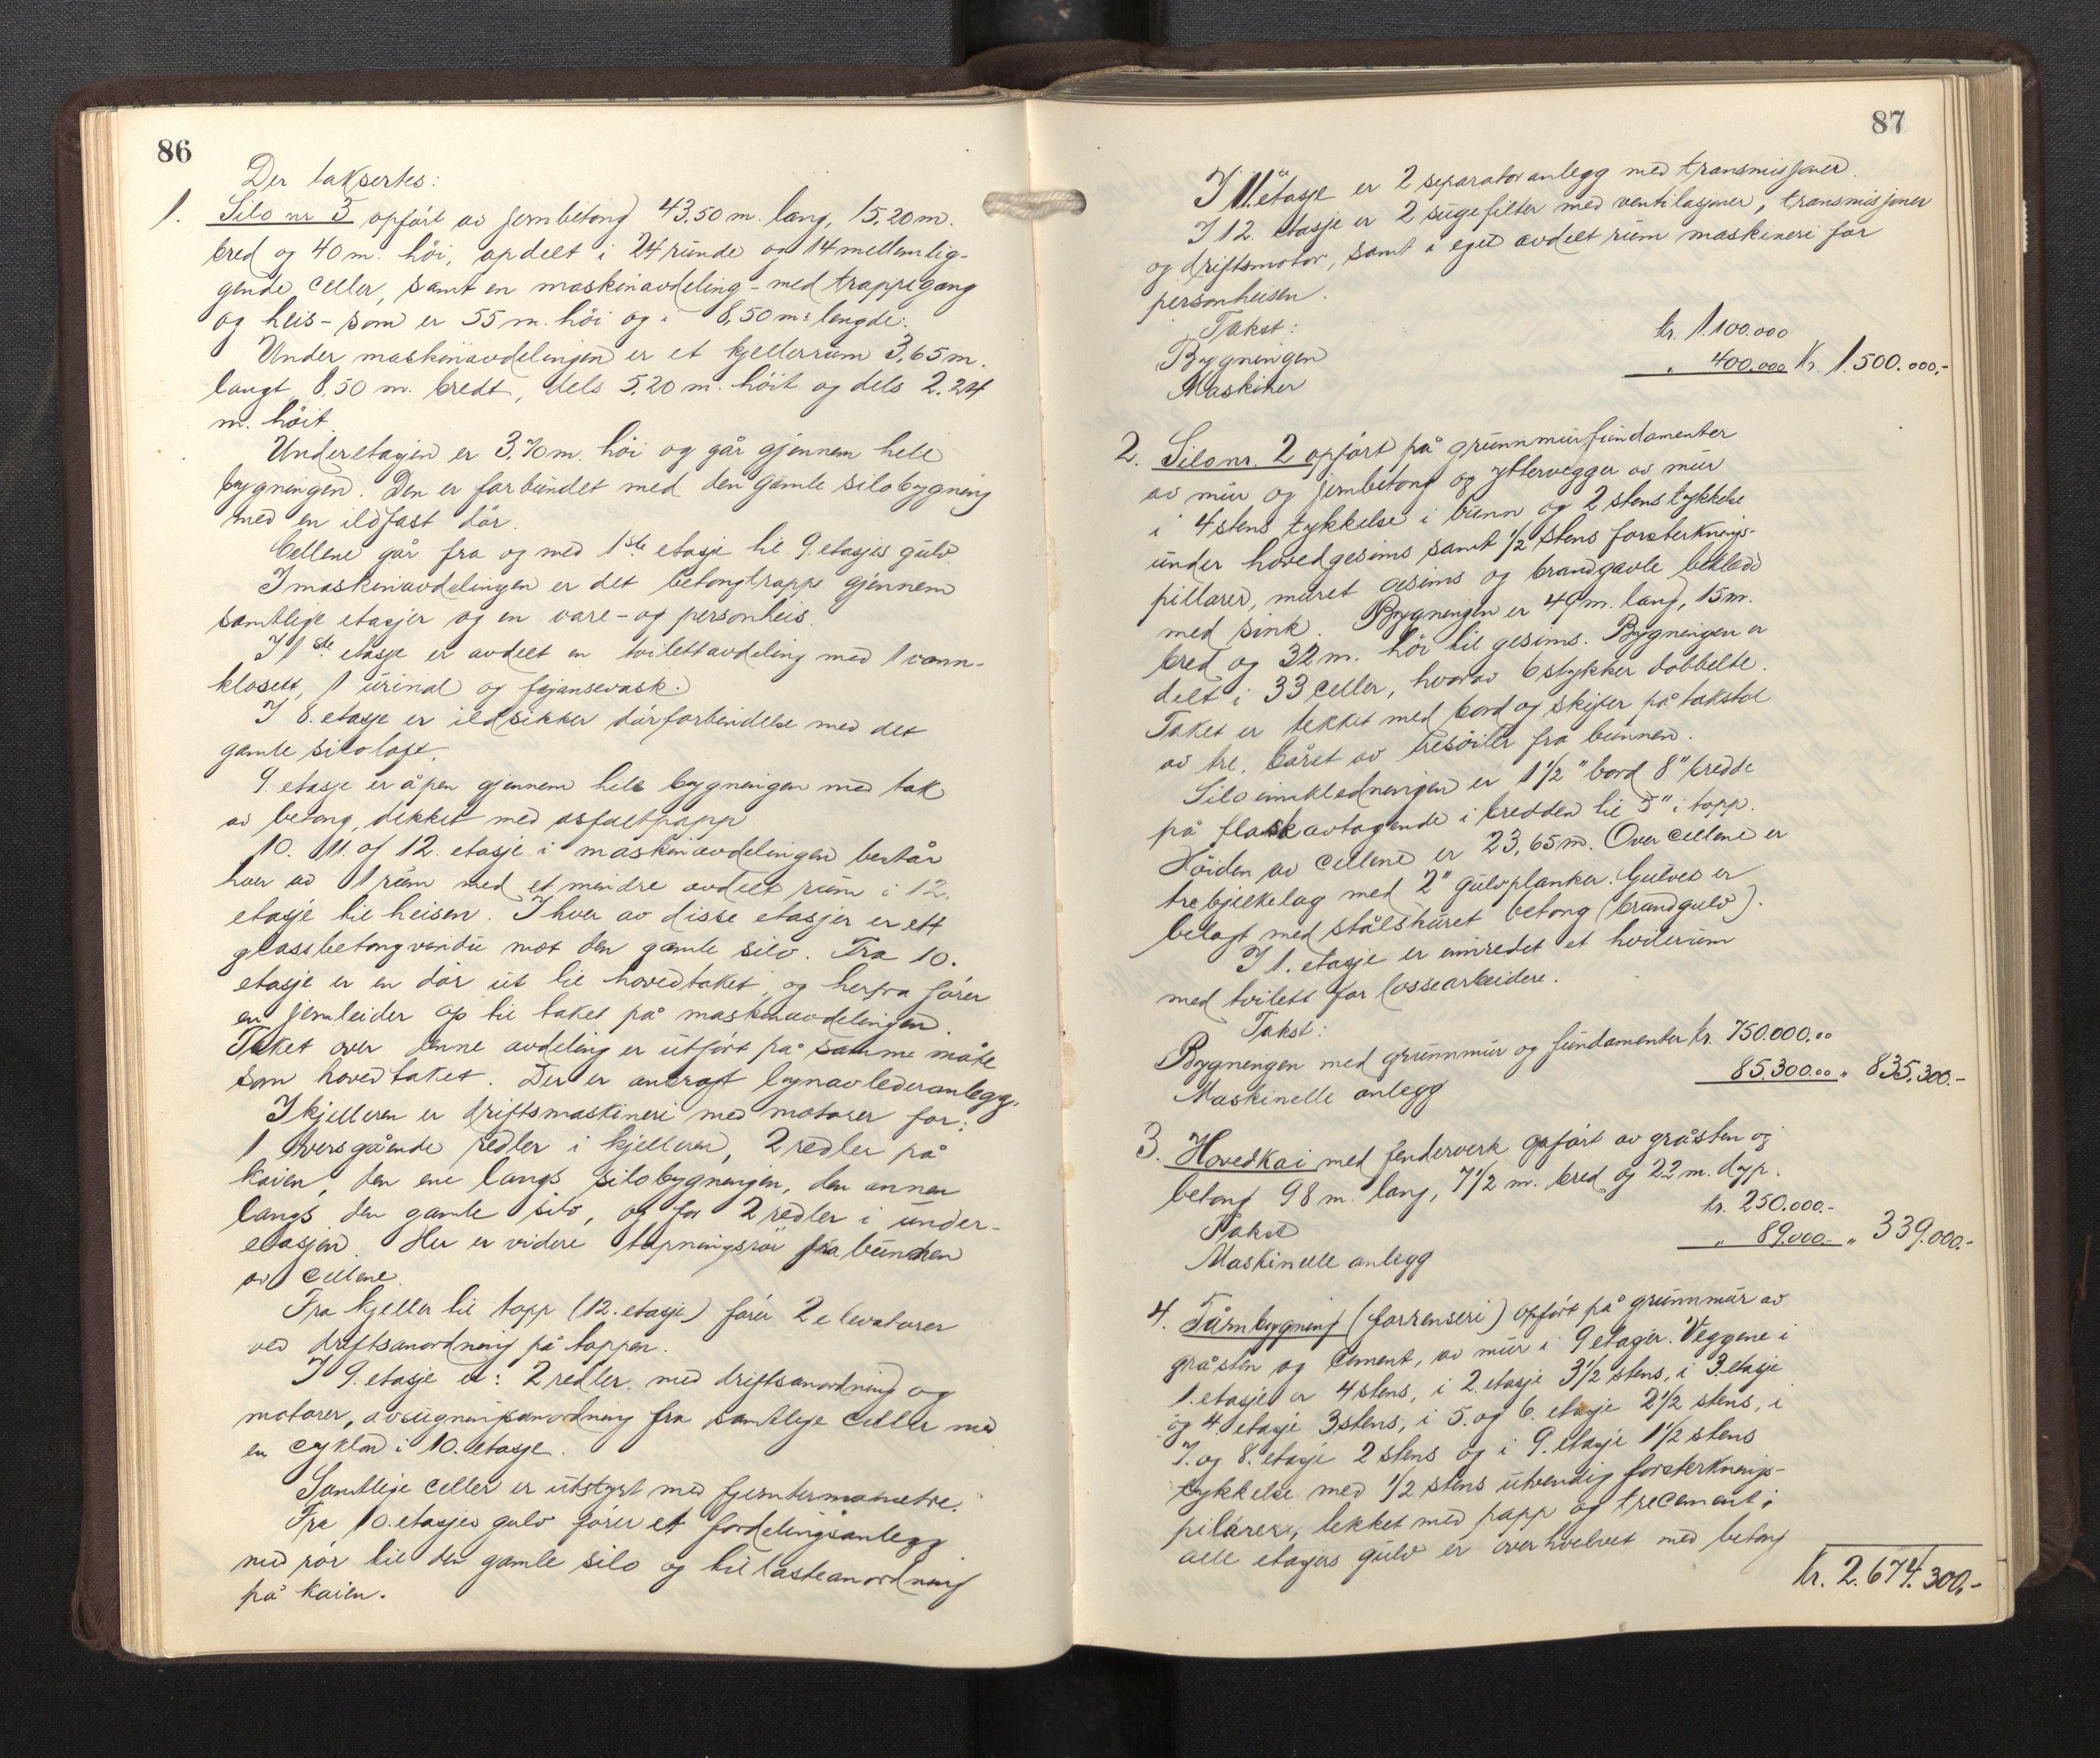 86
Der taksertes:
1. Silo nr 3 opført av jernbetong 43.50 m. lang, 15.20 m.
bred og 40 m. høi, opdelt i 24 runde og 14 mellemlig-
gende celler, samt en maskinavdeling - med trappegang
og heis - som er 55 m. høi og i 8,50 m's lengde.
Under maskinavdelingen er et kjellerrum 3,65 m.
langt 8,50 m. bredt, dels 5,20 m. høit og dels 2.24
m. høit.
Underetagen er 3.70 m. høi og går gjennem hele
bygningen. Den er forbundet med den gamle silobygning
med en ildfast dør.
Cellene går fra og med 1ste etasje til 9. etasjes gulv.
I maskinavdelingen er det betongtrappe gjennem
samtlige etasjer og en vare- og personheis.
I 1ste etasje er avdelt en toilettavdeling med 1 vann-
klosett, 1 urinal og fajansevask.
I 8. etasje er ildsikker dørforbindelse med det
gamle siloloft.
9. etasje er åpen gjennem hele bygningen med tak
av betong, dekket med asfaltpapp
10. 11. og 12. etasje i maskinavdelingen består
hver av 1 rum med et mindre avdelt rum i 12.
etasje til heisen. I hver av disse etasjer er ett
glassbetongvindu mot den gamle silo. Fra 10.
etasje er en dør ut til hovedtaket, og herfra fører
en jernleider op til taket på maskinavdelingen.
Taket over denne avdeling er utført på samme måte
som hovedtaket. Der er anbragt lynavlederanlegg.
I kjelleren er driftsmaskineri med motorer for:
1 tversgående redler i kjelleren, 2 redler på
kaien, den ene langs silobygningen, den annen
langs den gamle silo, og for 2 redler i under-
etasjen. Her er videre tapningsrør fra bunnen
av cellene.
Fra kjeller til topp (12. etasje) fører 2 elevatorer
ved driftsanordning på toppen.
I 9. etasje er: 2 redler med driftsanordning og
motorer, avsugningsanordning fra samtlige celler med
en cyklon i 10. etasje.
Samtlige celler er utstyrt med fjerntermometre.
Fra 10. etasjes gulv fører et fordelingsanlegg
med rør til den gamle silo og til lasteanordning
på kaien.
87
I 11. etasje er 2 separatoranlegg med transmisjoner.
I 12. etasje er 2 sugefilter med ventilasjoner, transmisjoner
og driftsmotor, samt i eget avdelt rum maskineri for
personheisen.
Takst:
Bygningen kr. 1.100.000
Maskiner " 400.000 Kr. 1.500.000,-
2. Silo nr. 2 opført på grunnmurfundamenter
av mur og jernbetong og yttervegger av mur
i 4 stens tykkelse i bunn og 2 stens tykkelse
under hovedgesims samt 1/2 stens forsterknings-
pillarer, muret gesims og brandgavle bekledd
med sink. Bygningen er 49 m. lang, 15 m.
bred og 32 m. høi til gesims. Bygningen er
delt i 33 celler, hvorav 6 stykker dobbelte.
Taket er tekket med bord og skifer på takstol
av tre, båret av tresøiler fra bunnen.
Siloinnkledningen er 1 1/2" bord 8" bredde
på flask avtagende i bredden til 3" i topp.
Høiden av cellene er 23,65 m. Over cellene er
trebjelkelag med 2" gulvplanker. Gulvet er
belagt med stålskuret betong (brandgulv).
I 1. etasje er innredet et hvilerum
med toilett for lossearbeidere.
Takst:
Bygningen med grunnmur og fundamenter kr. 750.000.00
Maskinelle anlegg 85.300.00 " 835.300.-
3. Hovedkai med fenderverk opført av gråsten og
betong 98 m. lang, 7 1/2 m. bred og 22 m. dyp.
Takst kr. 250.000.-
Maskinelle anlegg " 89.000.- " 339.000.-
4. Tårnbygning (forrenseri) opført på grunnmur av
gråsten og cement, av mur i 9 etager. Veggene i
1. etasje er 4 stens, i 2. etasje 3 1/2 stens, i 3. etasje
og 4 etasje 3 stens, i 5. og 6. etasje 2 1/2 stens, i
7. og 8. etasje 2 stens og i 9. etasje 1 1/2 stens
tykkelse med 1/2 stens utvendig forsterknings-
pilarer, tekket med papp og trecement;
alle etagers gulv er overhvelvet med betong
Kr. 2.674.300,-